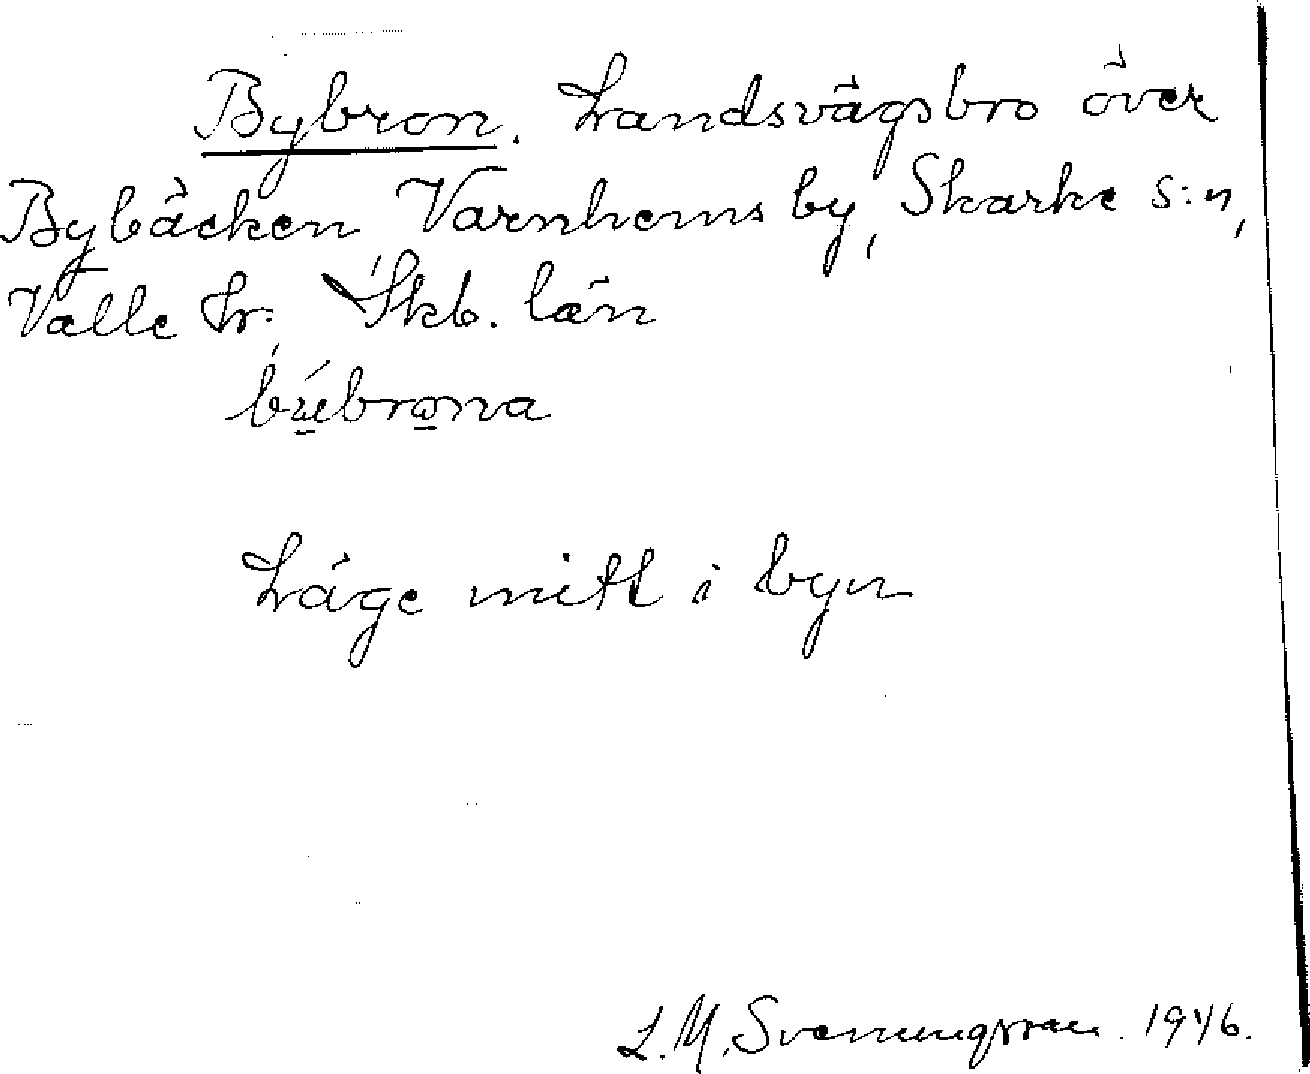 Bybron. Landsvägsbro över
Bybäcken Varnhems by, Skarke s:n,
Valle hr. Skb. län
Läge mitt i byn
L. M. Svenungsson. 1946.